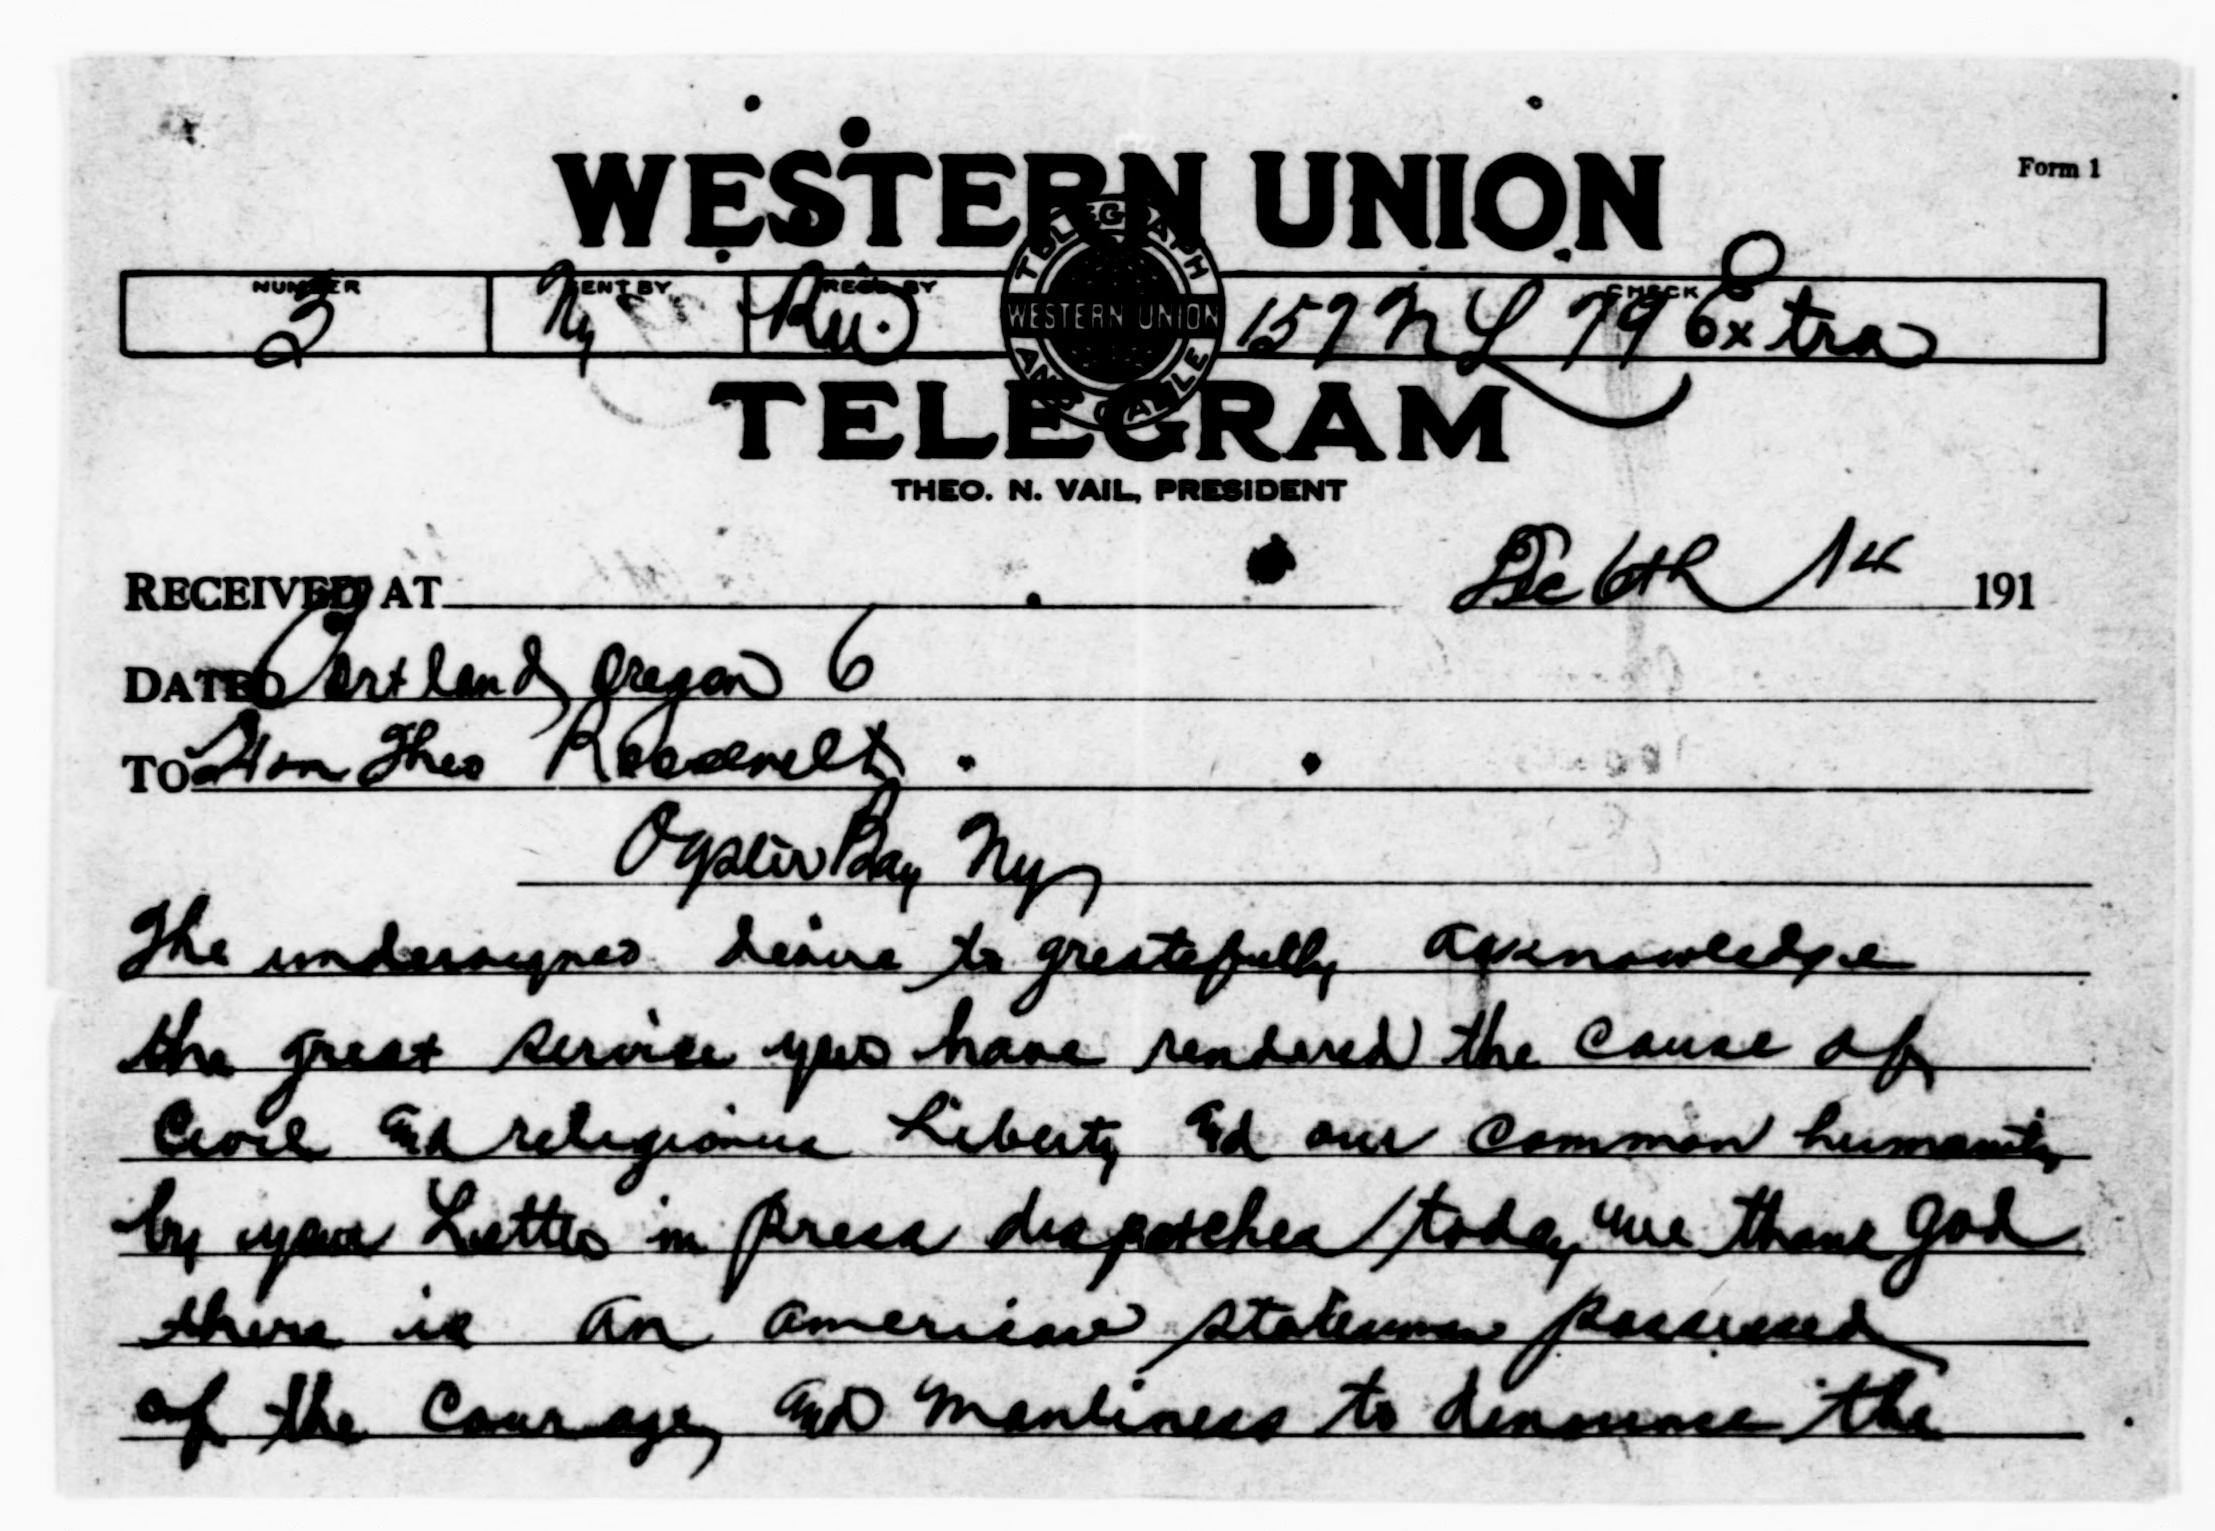 Form 1
WESTERN UNION
TELEGRAPH
WESTERN UNION
AND CABLE
NUMBER SENT BY REC'D BY CHECK
2 Ny 157 NL 79 Extra
TELEGRAM
THEO. N. VAIL, PRESIDENT
RECEIVED AT Dec 6th 14 191
DATED Portland Oregon 6
TO Hon Theo Roosevelt
Oyster Bay Ny
The undersigned desire to greatefully acknowledge
the great service you have rendered the cause of
Civil and religious Liberty and our common humanity
by your Letter in press dispatches today we thank God
there is an american statesman possessed
of the courage and manliness to denounce the